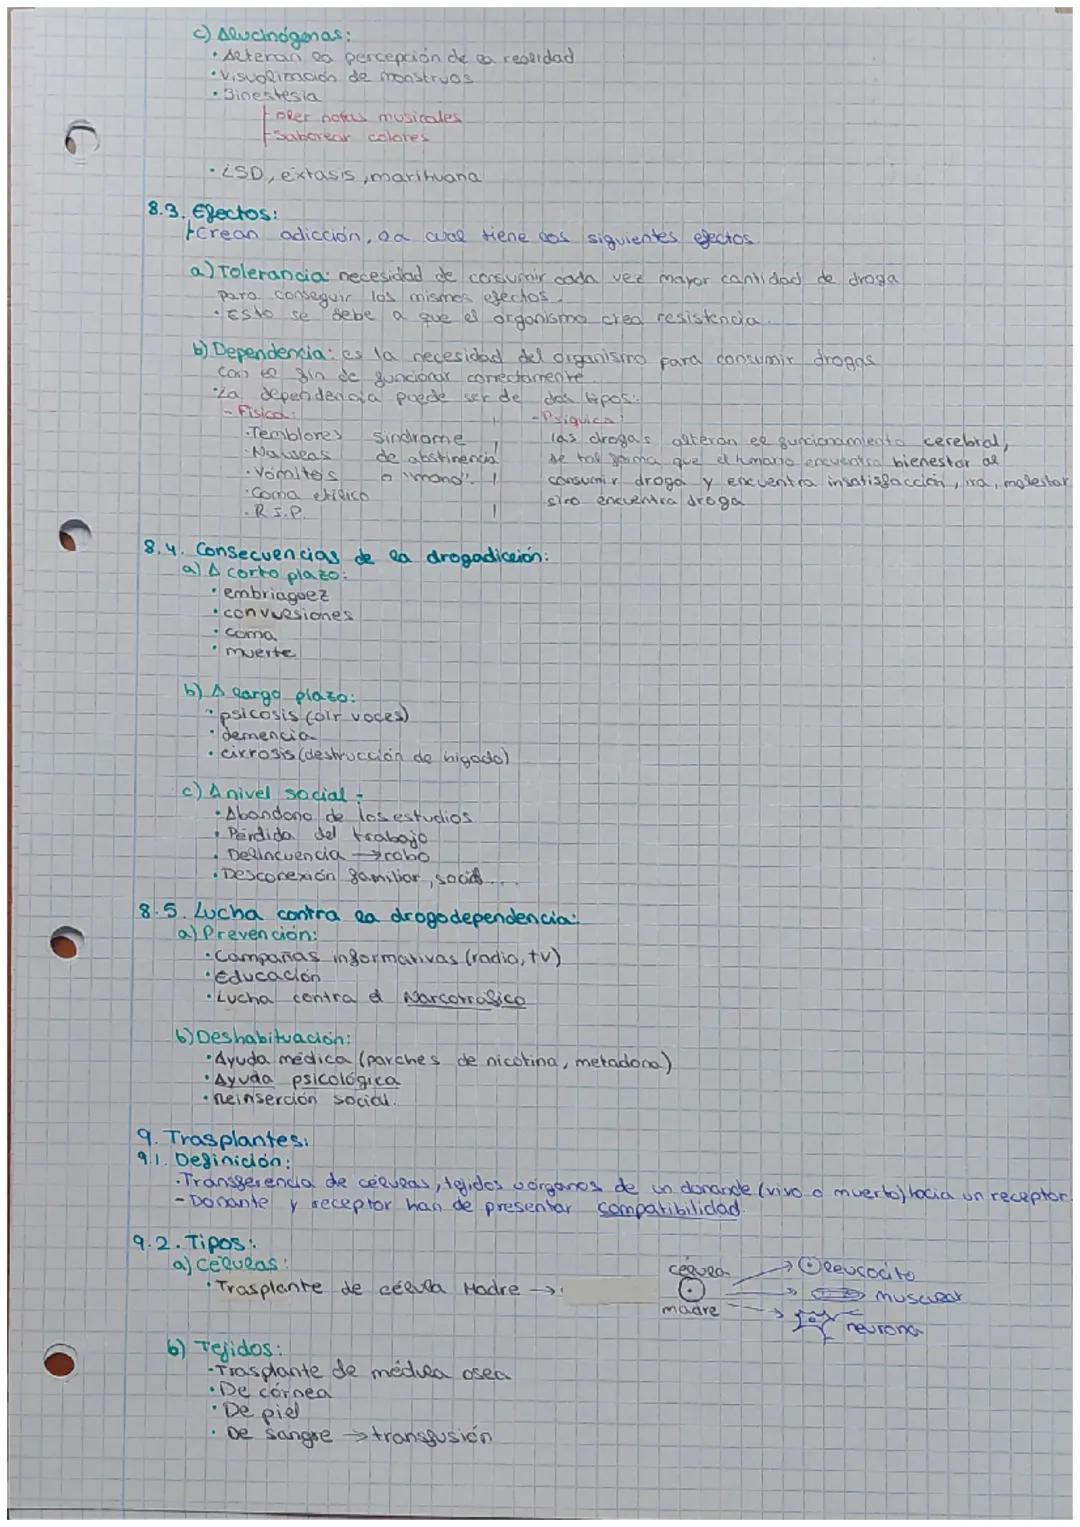 c) Alucinógenas:
· Alteran la percepción de la realidad
· Visualización de monstruos
· Sinestesia
- oler notas musicales
- saborear colores
· LSD, éxtasis, marihuana
8.3. Efectos:
Crean adicción, la cual tiene los siguientes efectos
a) Tolerancia: necesidad de consumir cada vez mayor cantidad de droga
para conseguir los mismos efectos.
· Esto se debe a que el organismo crea resistencia.
b) Dependencia: es la necesidad del organismo para consumir drogas
con el fin de funcionar correctamente.
· La dependencia puede ser de dos tipos:
- Física:
· Temblores
· Nauseas
· Vómitos
· Coma etílico
· R.I.P.
síndrome
de abstinencia
o "mono".
- Psíquica:
las drogas alteran el funcionamiento cerebral,
de tal forma que el humano encuentra bienestar al
consumir droga y encuentra insatisfacción, ira, malestar
si no encuentra droga
8.4. Consecuencias de la drogadicción:
a) A corto plazo:
· embriaguez
· convulsiones
· coma
· muerte
b) A largo plazo:
· psicosis (oír voces)
· demencia
· cirrosis (destrucción de hígado)
c) A nivel social:
· Abandono de los estudios
· Pérdida del trabajo
· Delincuencia → robo
· Desconexión familiar, social...
8.5. Lucha contra la drogodependencia:
a) Prevención:
· Campañas informativas (radio, tv)
· Educación
· Lucha contra el Narcotráfico
b) Deshabituación:
· Ayuda médica (parches de nicotina, metadona)
· Ayuda psicológica
· Reinserción social.
9. Trasplantes:
9.1. Definición:
· Transferencia de células, tejidos u órganos de un donande (vivo o muerto) hacia un receptor.
- Donante y receptor han de presentar compatibilidad.
9.2. Tipos:
a) Células:
· Trasplante de célula Madre →
célula
madre
leucocito
muscular
neurona
b) Tejidos:
· Trasplante de médula osea
· De córnea
· De piel
· De sangre → transfusión